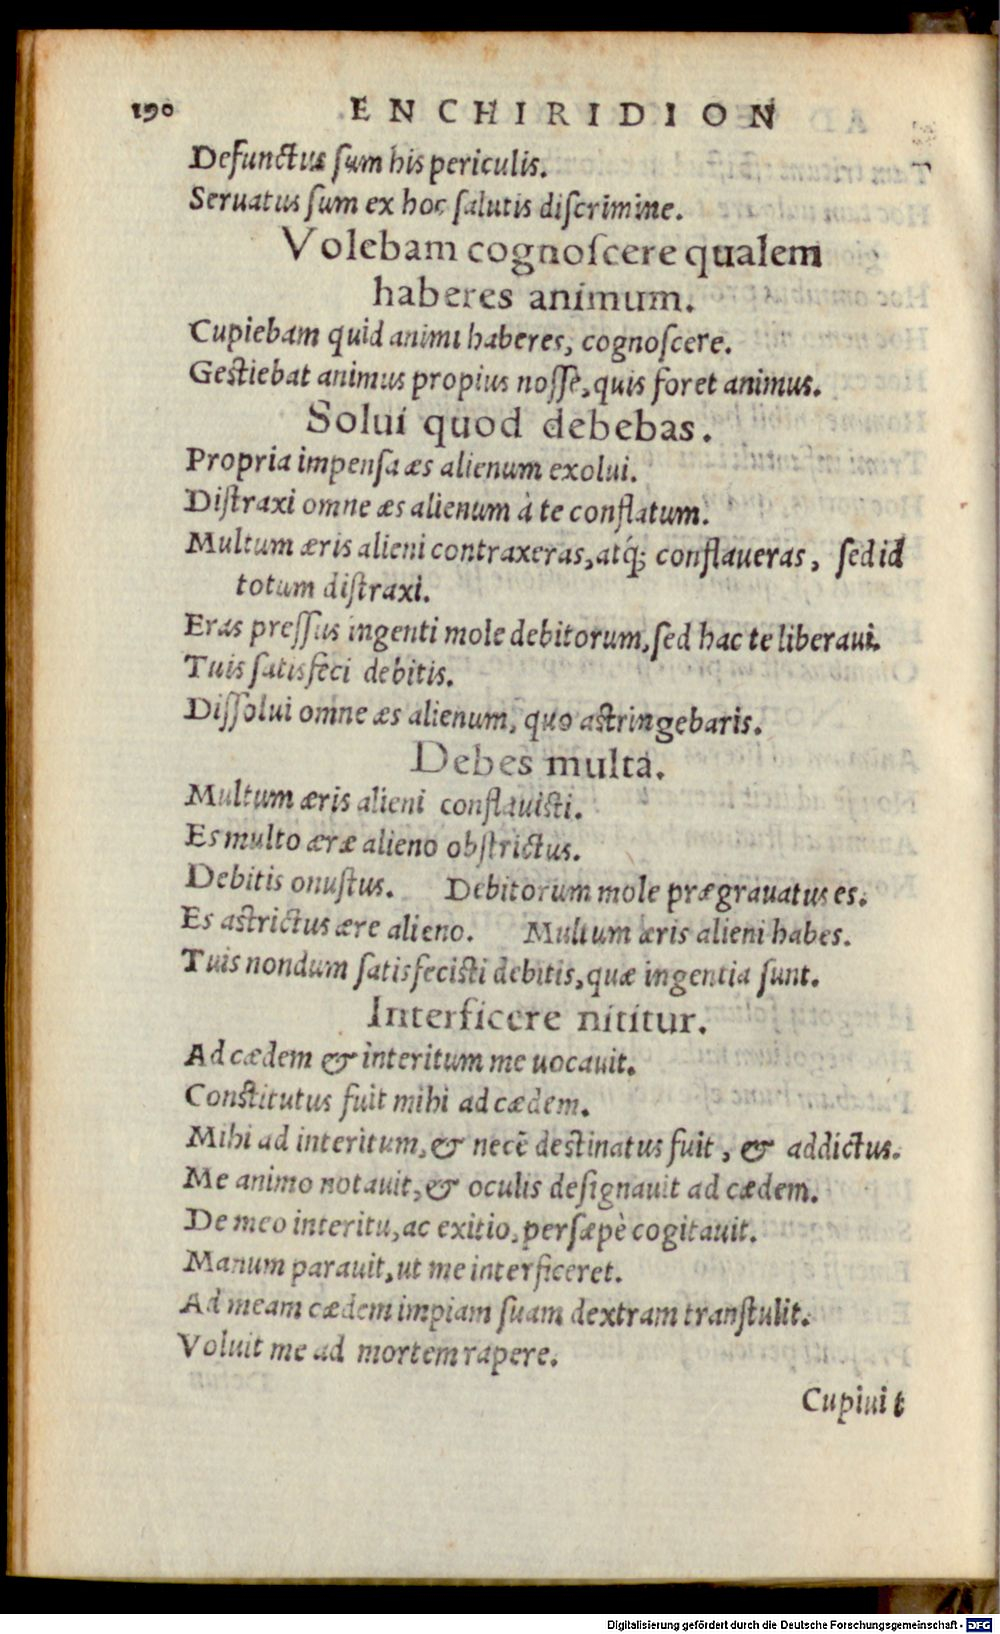 190 ENCHIRIDION
Defunctus ſum his periculis.
Seruatus ſum ex hoc ſalutis diſcrimine.
Volebam cognoſcere qualem
haberes animum.
Cupiebam quid animi haberes, cognoſcere.
Geſtiebat animus propius noſſe, quis foret animus.
Solui quod debebas.
Propria impenſa æs alienum exolui.
Diſtraxi omne æs alienum à te conflatum.
Multum æris alieni contraxeras, atq; conflaueras, ſed id
totum diſtraxi.
Eras preſſus ingenti mole debitorum, ſed hac te liberaui.
Tuis ſatisfeci debitis.
Diſſolui omne æs alienum, quo aſtringebaris.
Debes multa.
Multum æris alieni conflauiſti.
Es multo æræ alieno obſtrictus.
Debitis onuſtus. Debitorum mole prægrauatus es.
Es aſtrictus ære alieno. Multum æris alieni habes.
Tuis nondum ſatisfeciſti debitis, quæ ingentia ſunt.
Interficere nititur.
Ad cædem & interitum me uocauit.
Conſtitutus fuit mihi ad cædem.
Mihi ad interitum, & necē deſtinatus fuit, & addictus.
Me animo notauit, & oculis deſignauit ad cædem.
De meo interitu, ac exitio, perſæpè cogitauit.
Manum parauit, ut me interficeret.
Ad meam cædem impiam ſuam dextram tranſtulit.
Voluit me ad mortem rapere.
Cupiuit
Digitalisierung gefördert durch die Deutsche Forschungsgemeinschaft - DFG